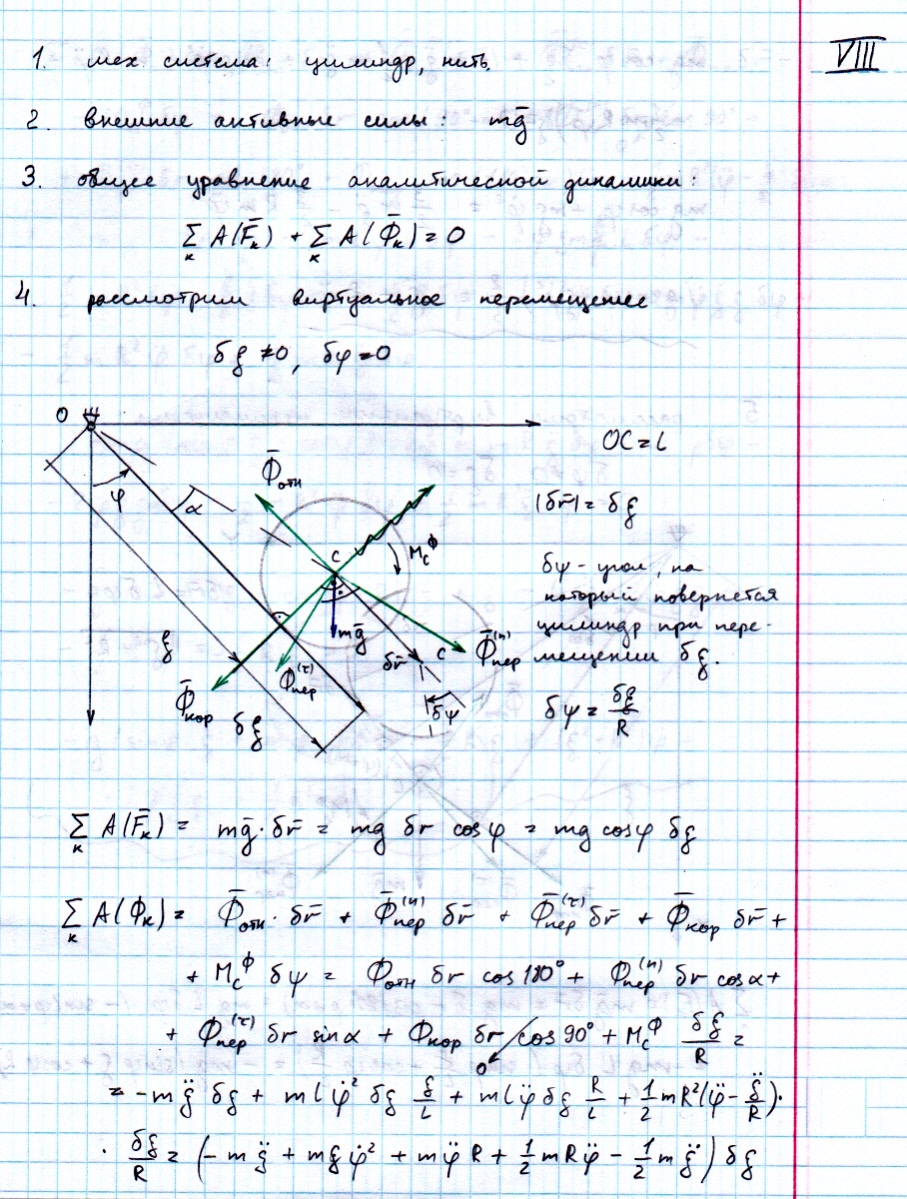 VIII
1. мех система: цилиндр, нить.
2. внешние активные силы: mḡ
3. общее уравнение аналитической динамики:
∑ₖ A(F̄ₖ) + ∑ₖ A(Φ̄ₖ) = 0
4. рассмотрим виртуальное перемещение
δξ ≠ 0, δφ = 0
O
φ
α
ξ
δξ
Φ̄отн
C
M_C^Φ
mḡ
δr̄
C
Φ̄пер⁽ⁿ⁾
Φ̄пер⁽τ⁾
Φ̄кор
δψ
OC = L
|δr̄| = δξ
δψ - угол, на
который повернется
цилиндр при пере-
мещении δξ.
δψ = δξ/R
∑ₖ A(F̄ₖ) = mḡ·δr̄ = mg δr cosφ = mg cosφ δξ
∑ₖ A(Φₖ) = Φ̄отн · δr̄ + Φ̄пер⁽ⁿ⁾ δr̄ + Φ̄пер⁽τ⁾ δr̄ + Φ̄кор δr̄ +
+ M_C^Φ δψ = Φотн δr cos 180° + Φпер⁽ⁿ⁾ δr cosα +
+ Φпер⁽τ⁾ δr sinα + Φкор δr cos 90° + M_C^Φ δξ/R =
0
= -mξ̈ δξ + mLφ̇² δξ ξ/L + mLφ̈ δξ R/L + 1/2 mR²(φ̈ - ξ̈/R)·
· δξ/R = (-mξ̈ + mξφ̇² + mφ̈R + 1/2 mRφ̈ - 1/2 mξ̈) δξ